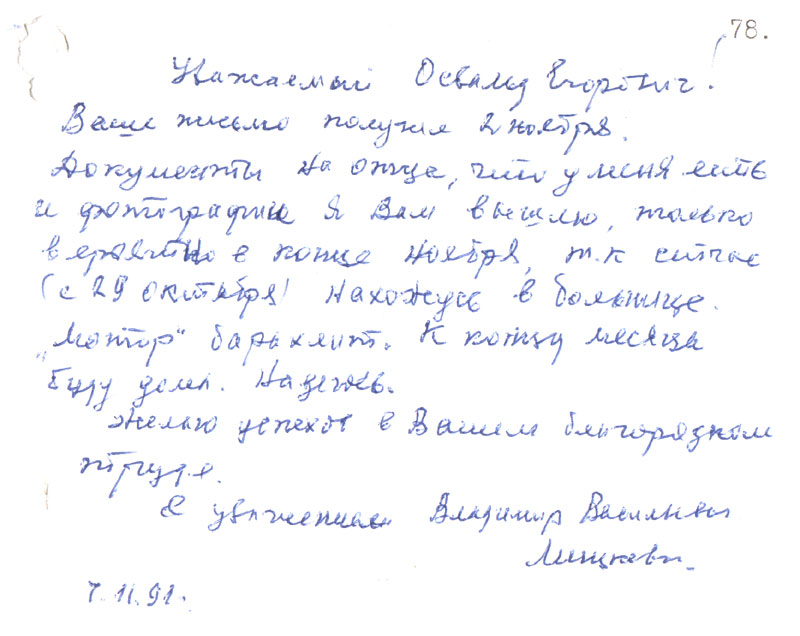 78.
Уважаемый Освальд Егорович.
Ваше письмо получил 2 ноября.
Документы на отца, что у меня есть
и фотографии я Вам вышлю, только
вероятно в конце ноября, т.к сейчас
(с 29 октября) нахожусь в больнице.
„Мотор" барахлит. К концу месяца
буду дома. Надеюсь.
Желаю успехов в Вашем благородном
труде.
С уважением Владимир Васильевич
7.11.91.